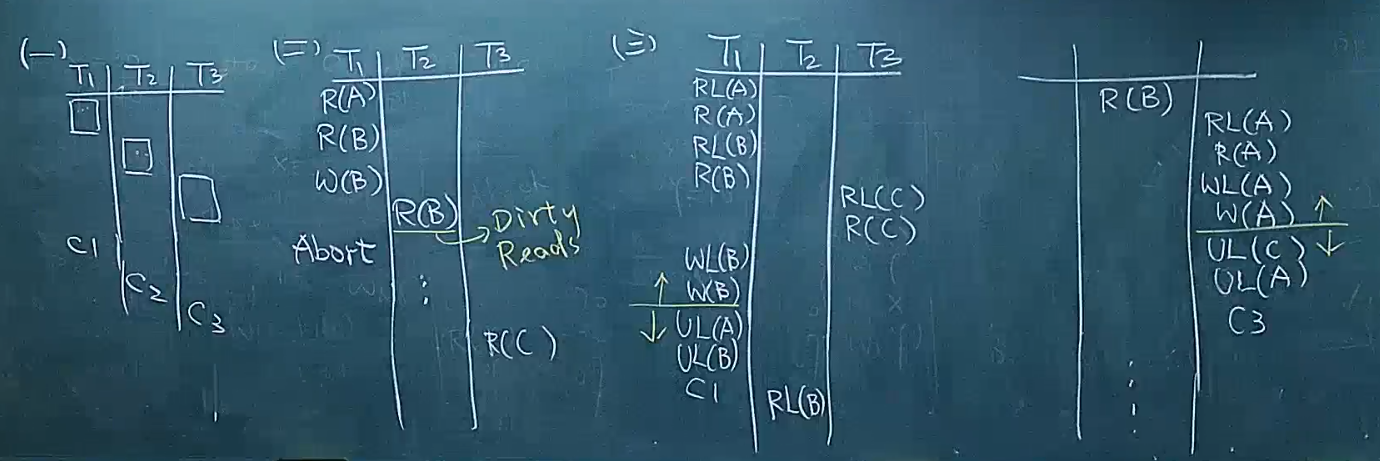 (一)
T1 T2 T3
C1
C2
C3
(二)
T1 T2 T3
R(A)
R(B)
W(B)
R(B)
Dirty
Reads
Abort
R(C)
(三)
T1 T2 T3
RL(A)
R(A)
RL(B)
R(B)
RL(C)
R(C)
WL(B)
W(B)
UL(A)
UL(B)
C1
RL(B)
R(B)
RL(A)
R(A)
WL(A)
W(A)
UL(C)
UL(A)
C3